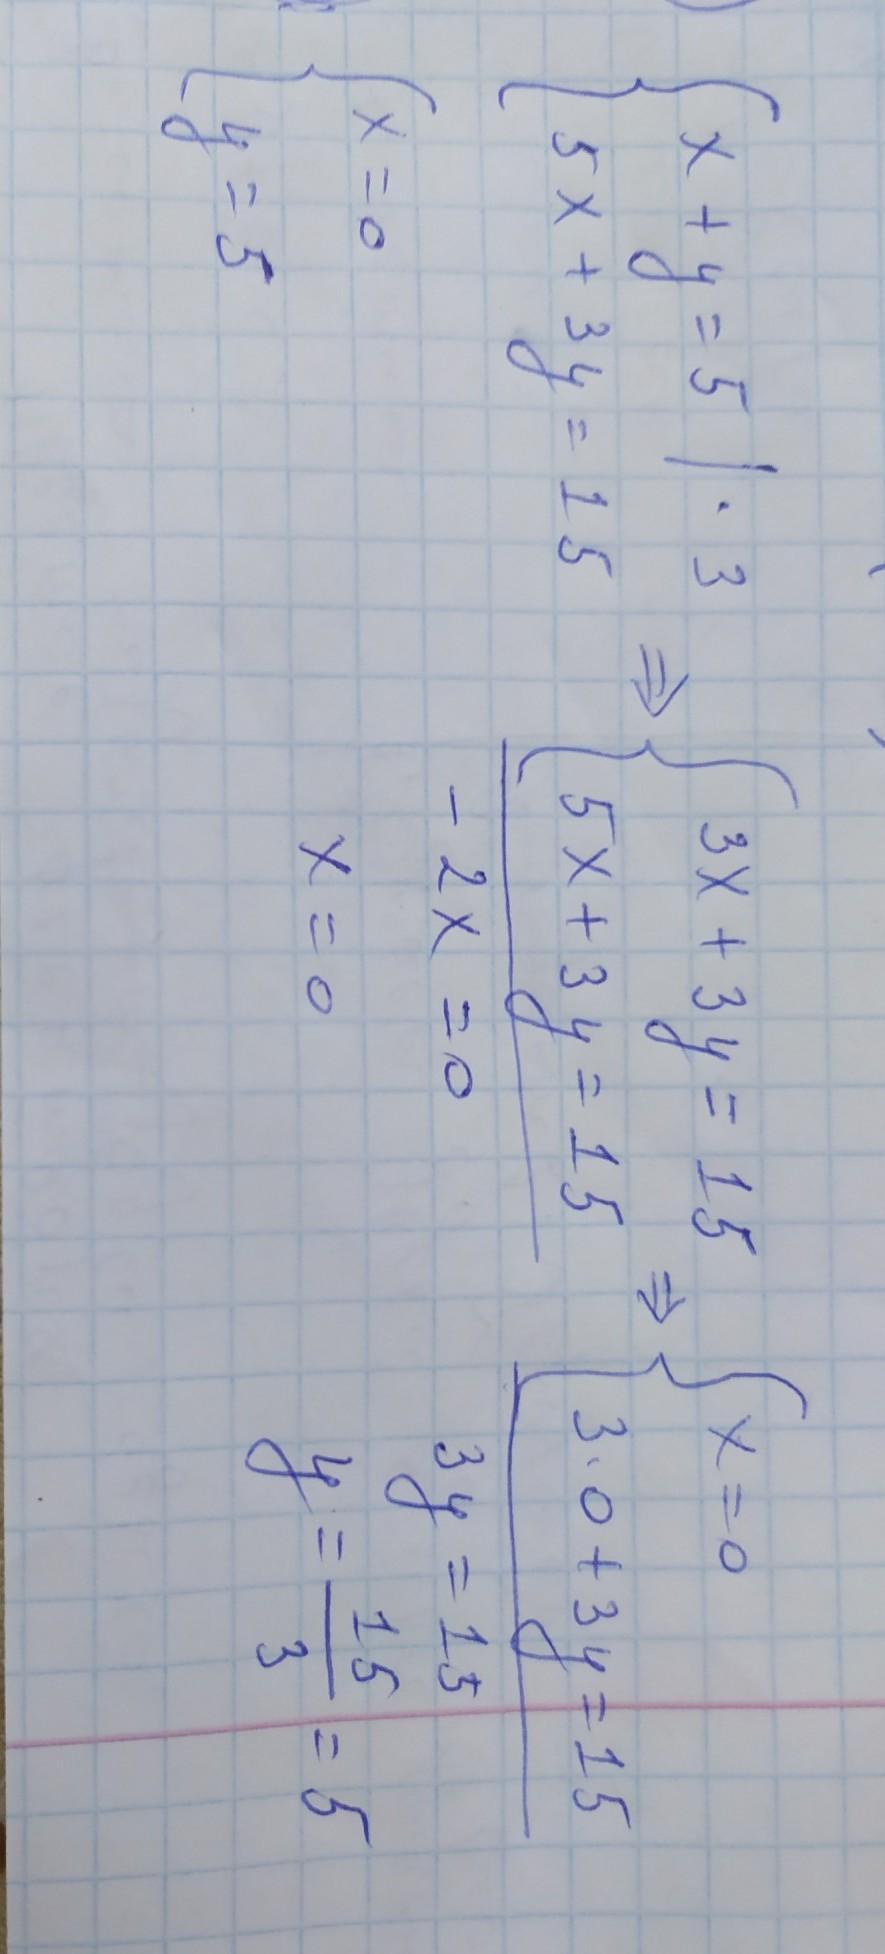 { x + y = 5 | · 3
{ 5x + 3y = 15
⇒
{ 3x + 3y = 15
{ 5x + 3y = 15
- 2x = 0
x = 0
⇒
{ x = 0
{ 3 · 0 + 3y = 15
3y = 15
y = 15/3 = 5
{ x = 0
{ y = 5